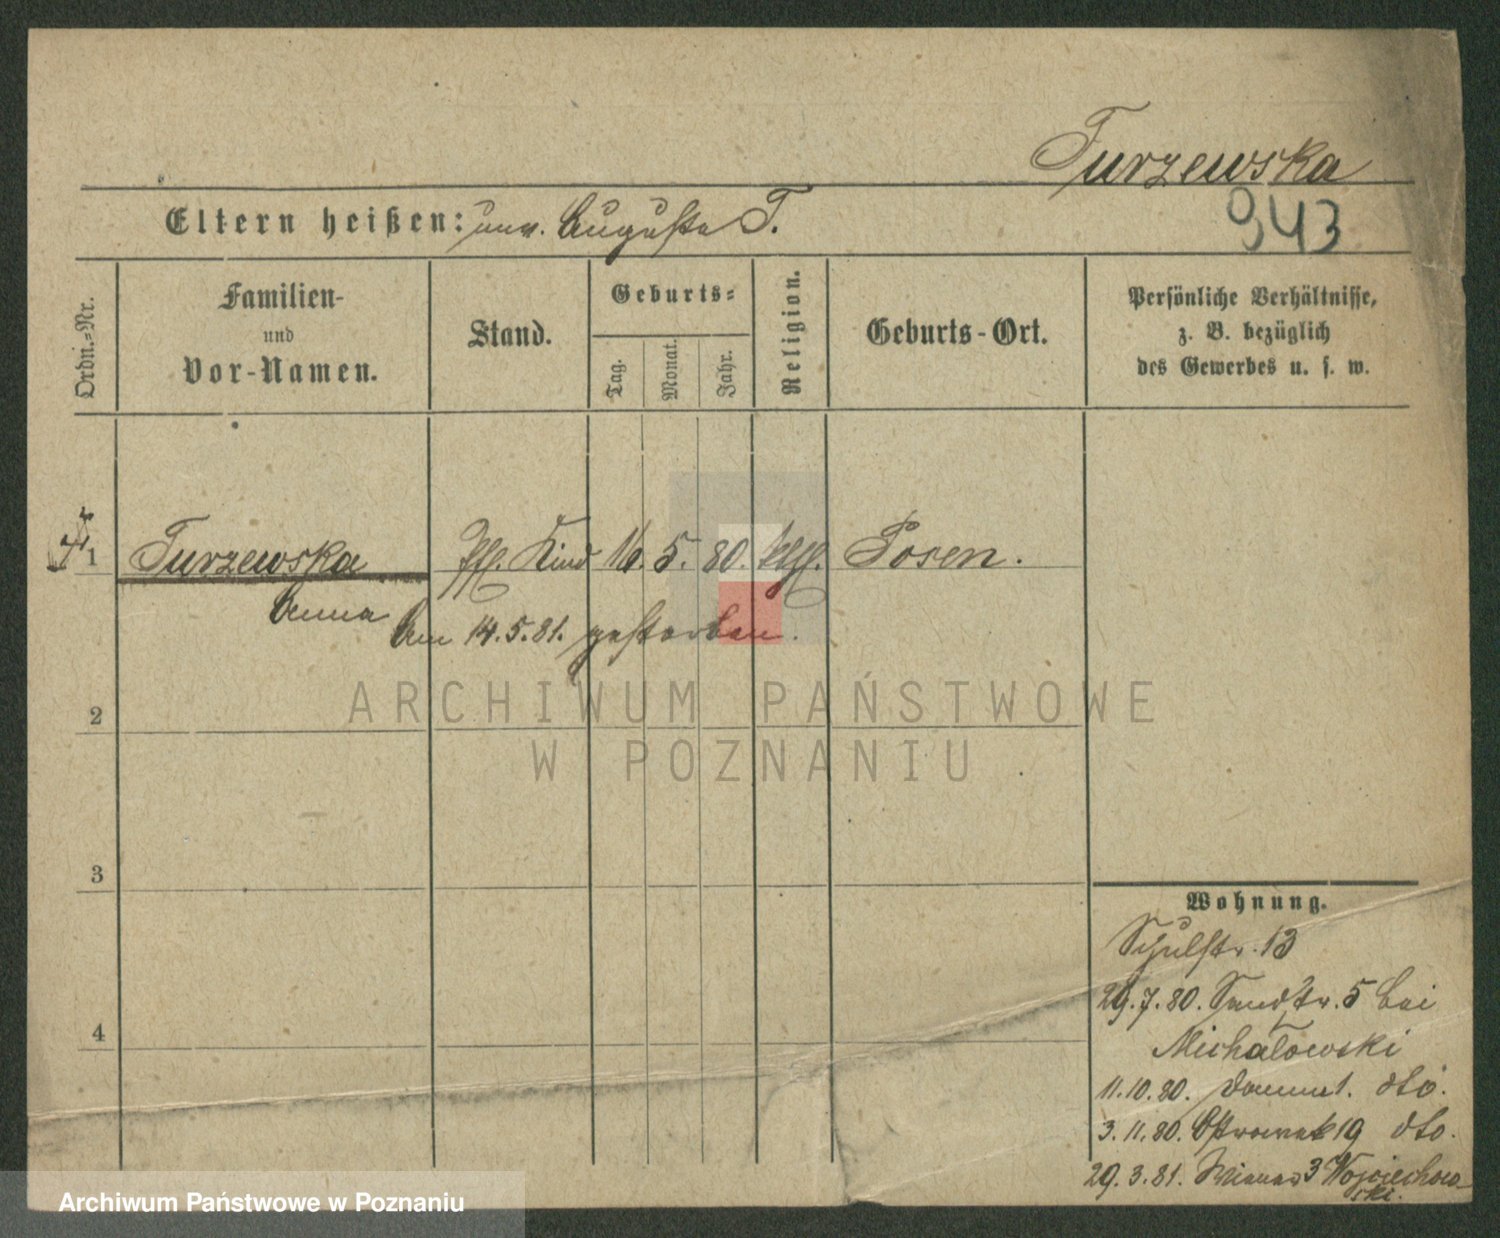 Turzewska
943
Eltern heißen: unv. Auguste T.
Ordn.-Nr.
Familien-
und
Vor-Namen.
Stand.
Geburts-
Tag.
Monat.
Jahr.
Religion.
Geburts-Ort.
Persönliche Verhältnisse,
z. B. bezüglich
des Gewerbes u. s. w.
1 Turzewska Pfl. Kind 16. 5. 80. kth. Posen.
Anna
Am 14.5.81. gestorben.
ARCHIWUM PAŃSTWOWE
W POZNANIU
2
3
4
Wohnung.
Schulstr. 13
29.7.80. Sandstr. 5 bei
Michałowski
11.10.80. Damm 1. dto.
3.11.80. Ostrowek 19 dto.
29.3.81. 3 Wojciechow
ski.
Archiwum Państwowe w Poznaniu